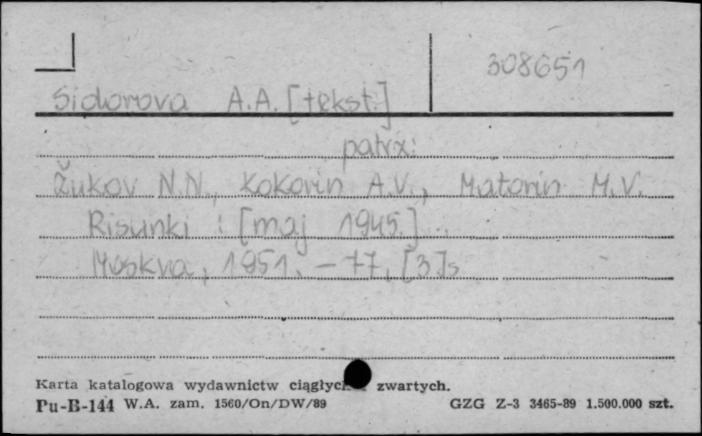 308651
Sidorova A.A. [tekst.]
patrz:
Žukov N.N., Kokorin A.V., Matorin M.V.
Risunki : [maj 1945.]
Moskva, 1951. – 77, [3]s
Karta katalogowa wydawnictw zwartych.
Pu-B-144 W.A. zam. 1560/On/DW/89 GZG Z-3 3465-89 1.500.000 szt.